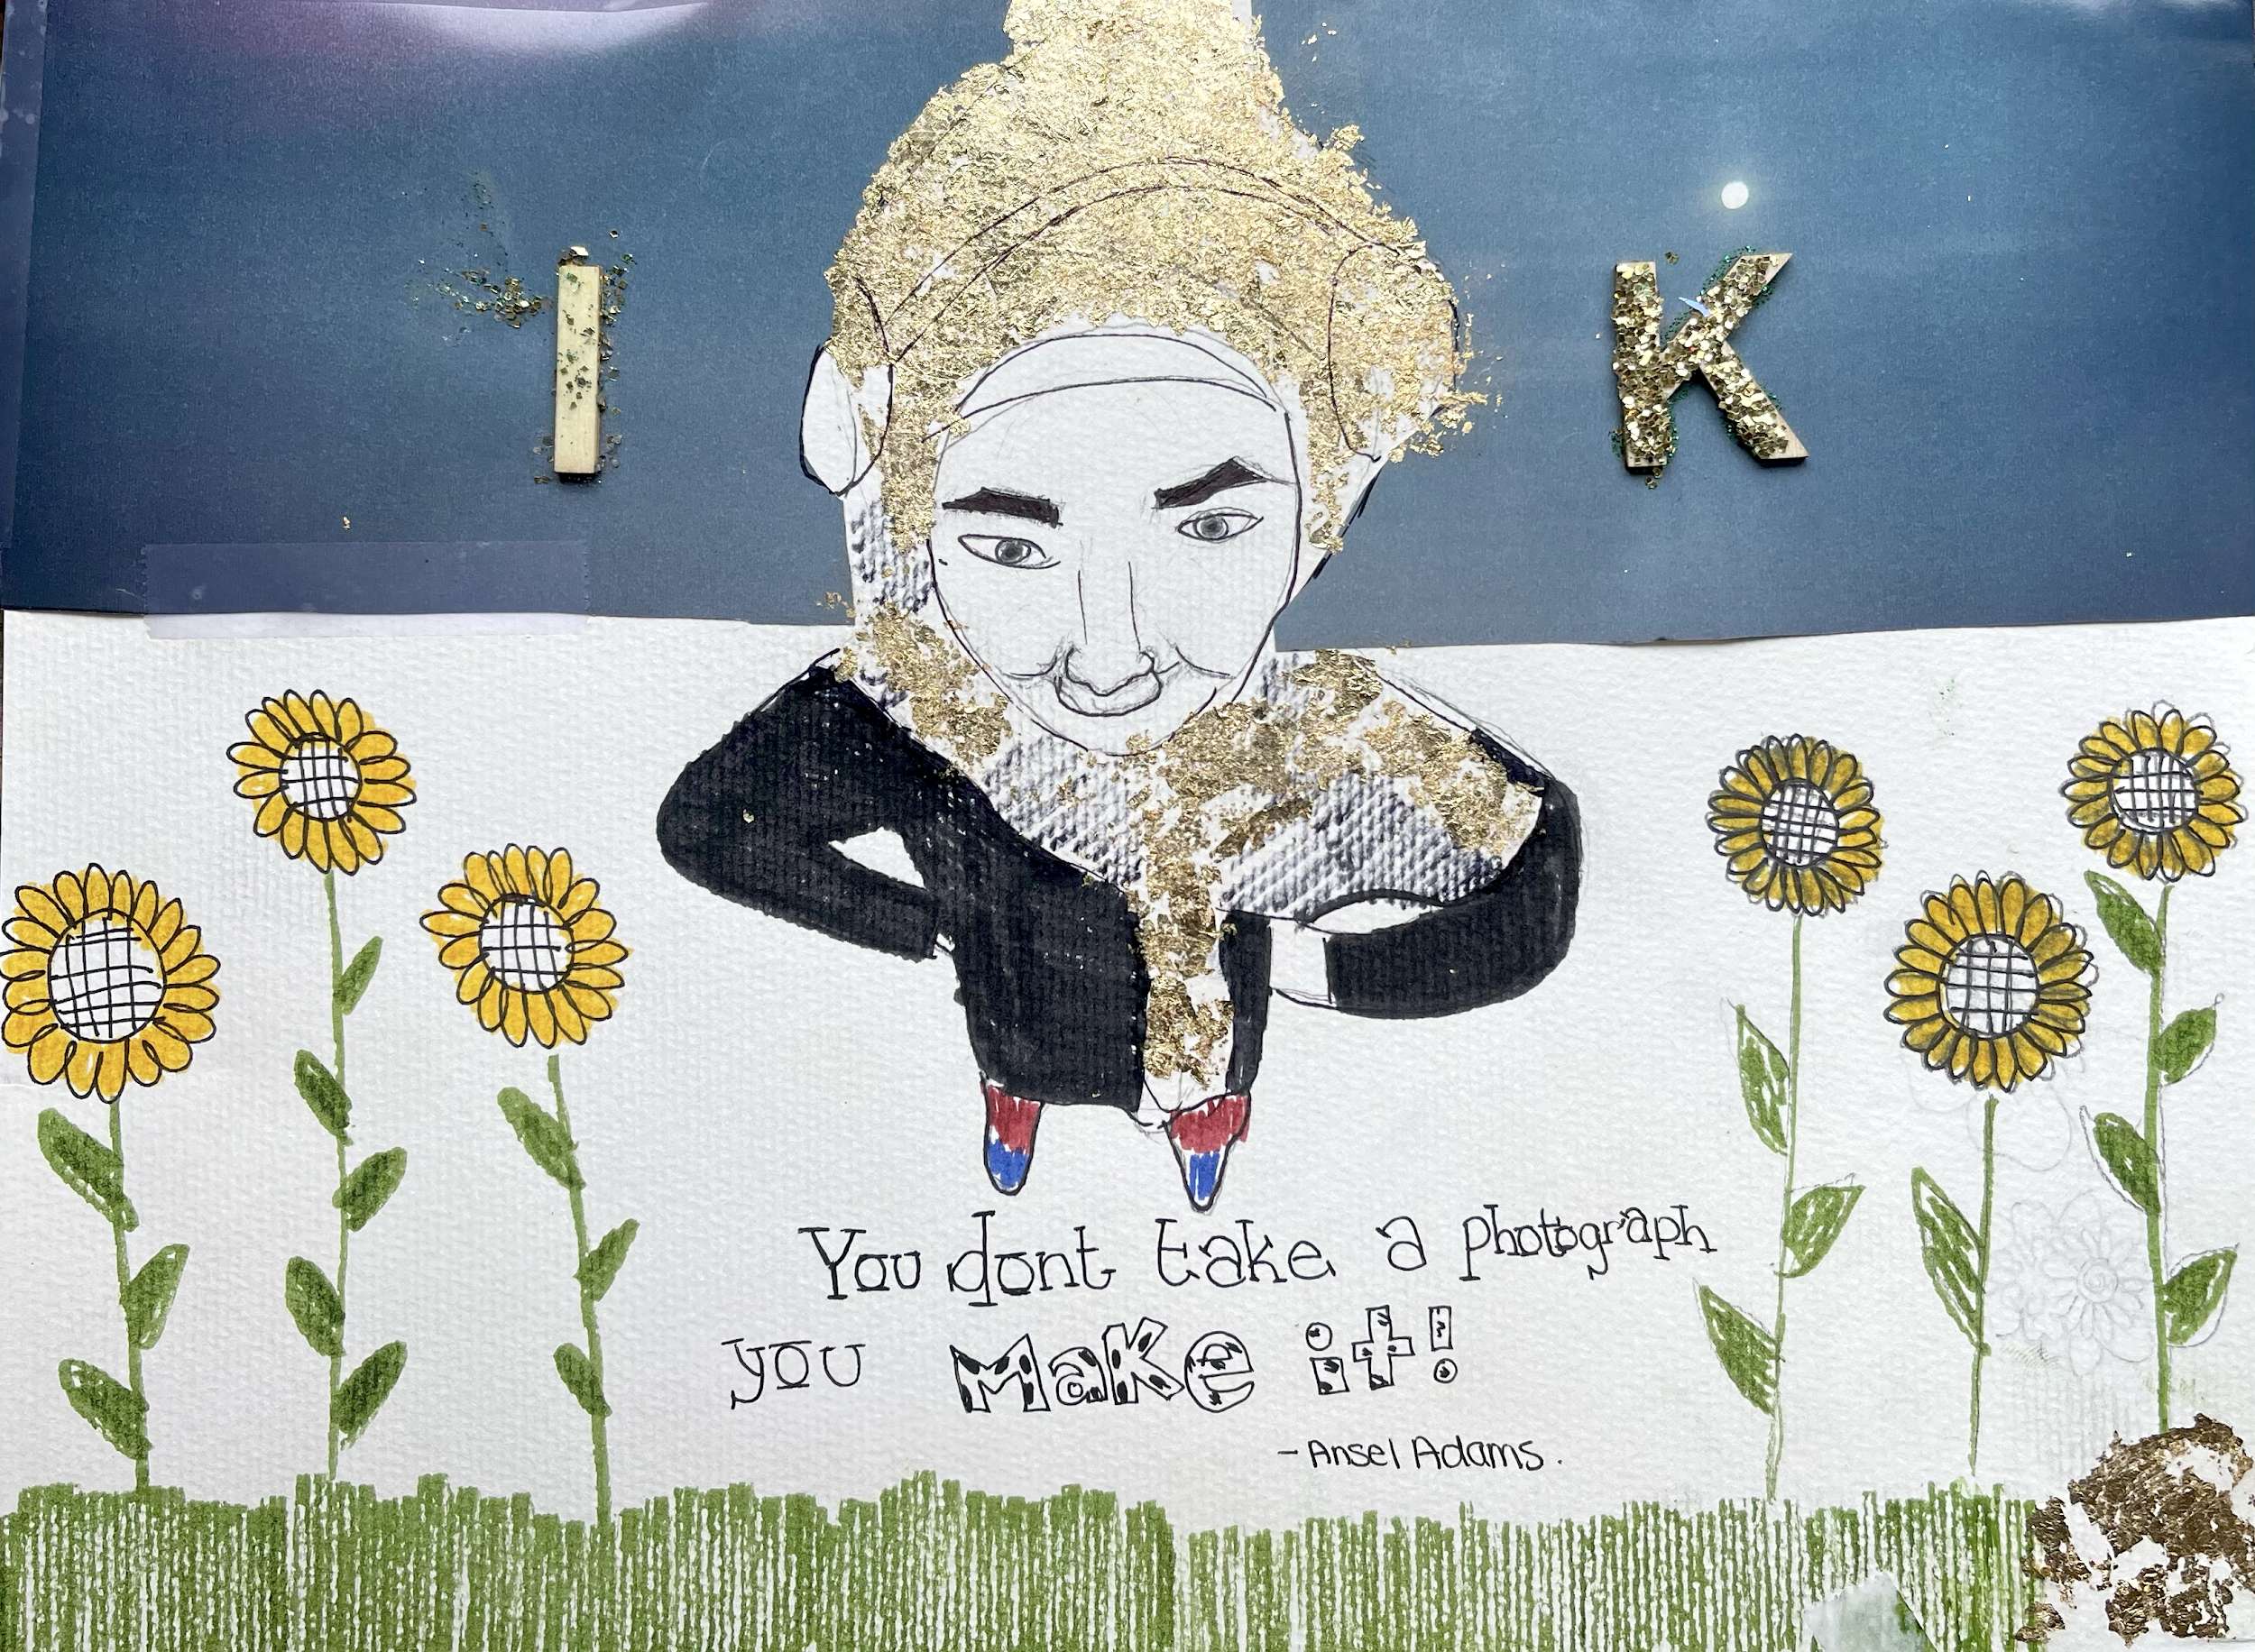 I K
You dont take a photograph
you Make it!
- Ansel Adams.